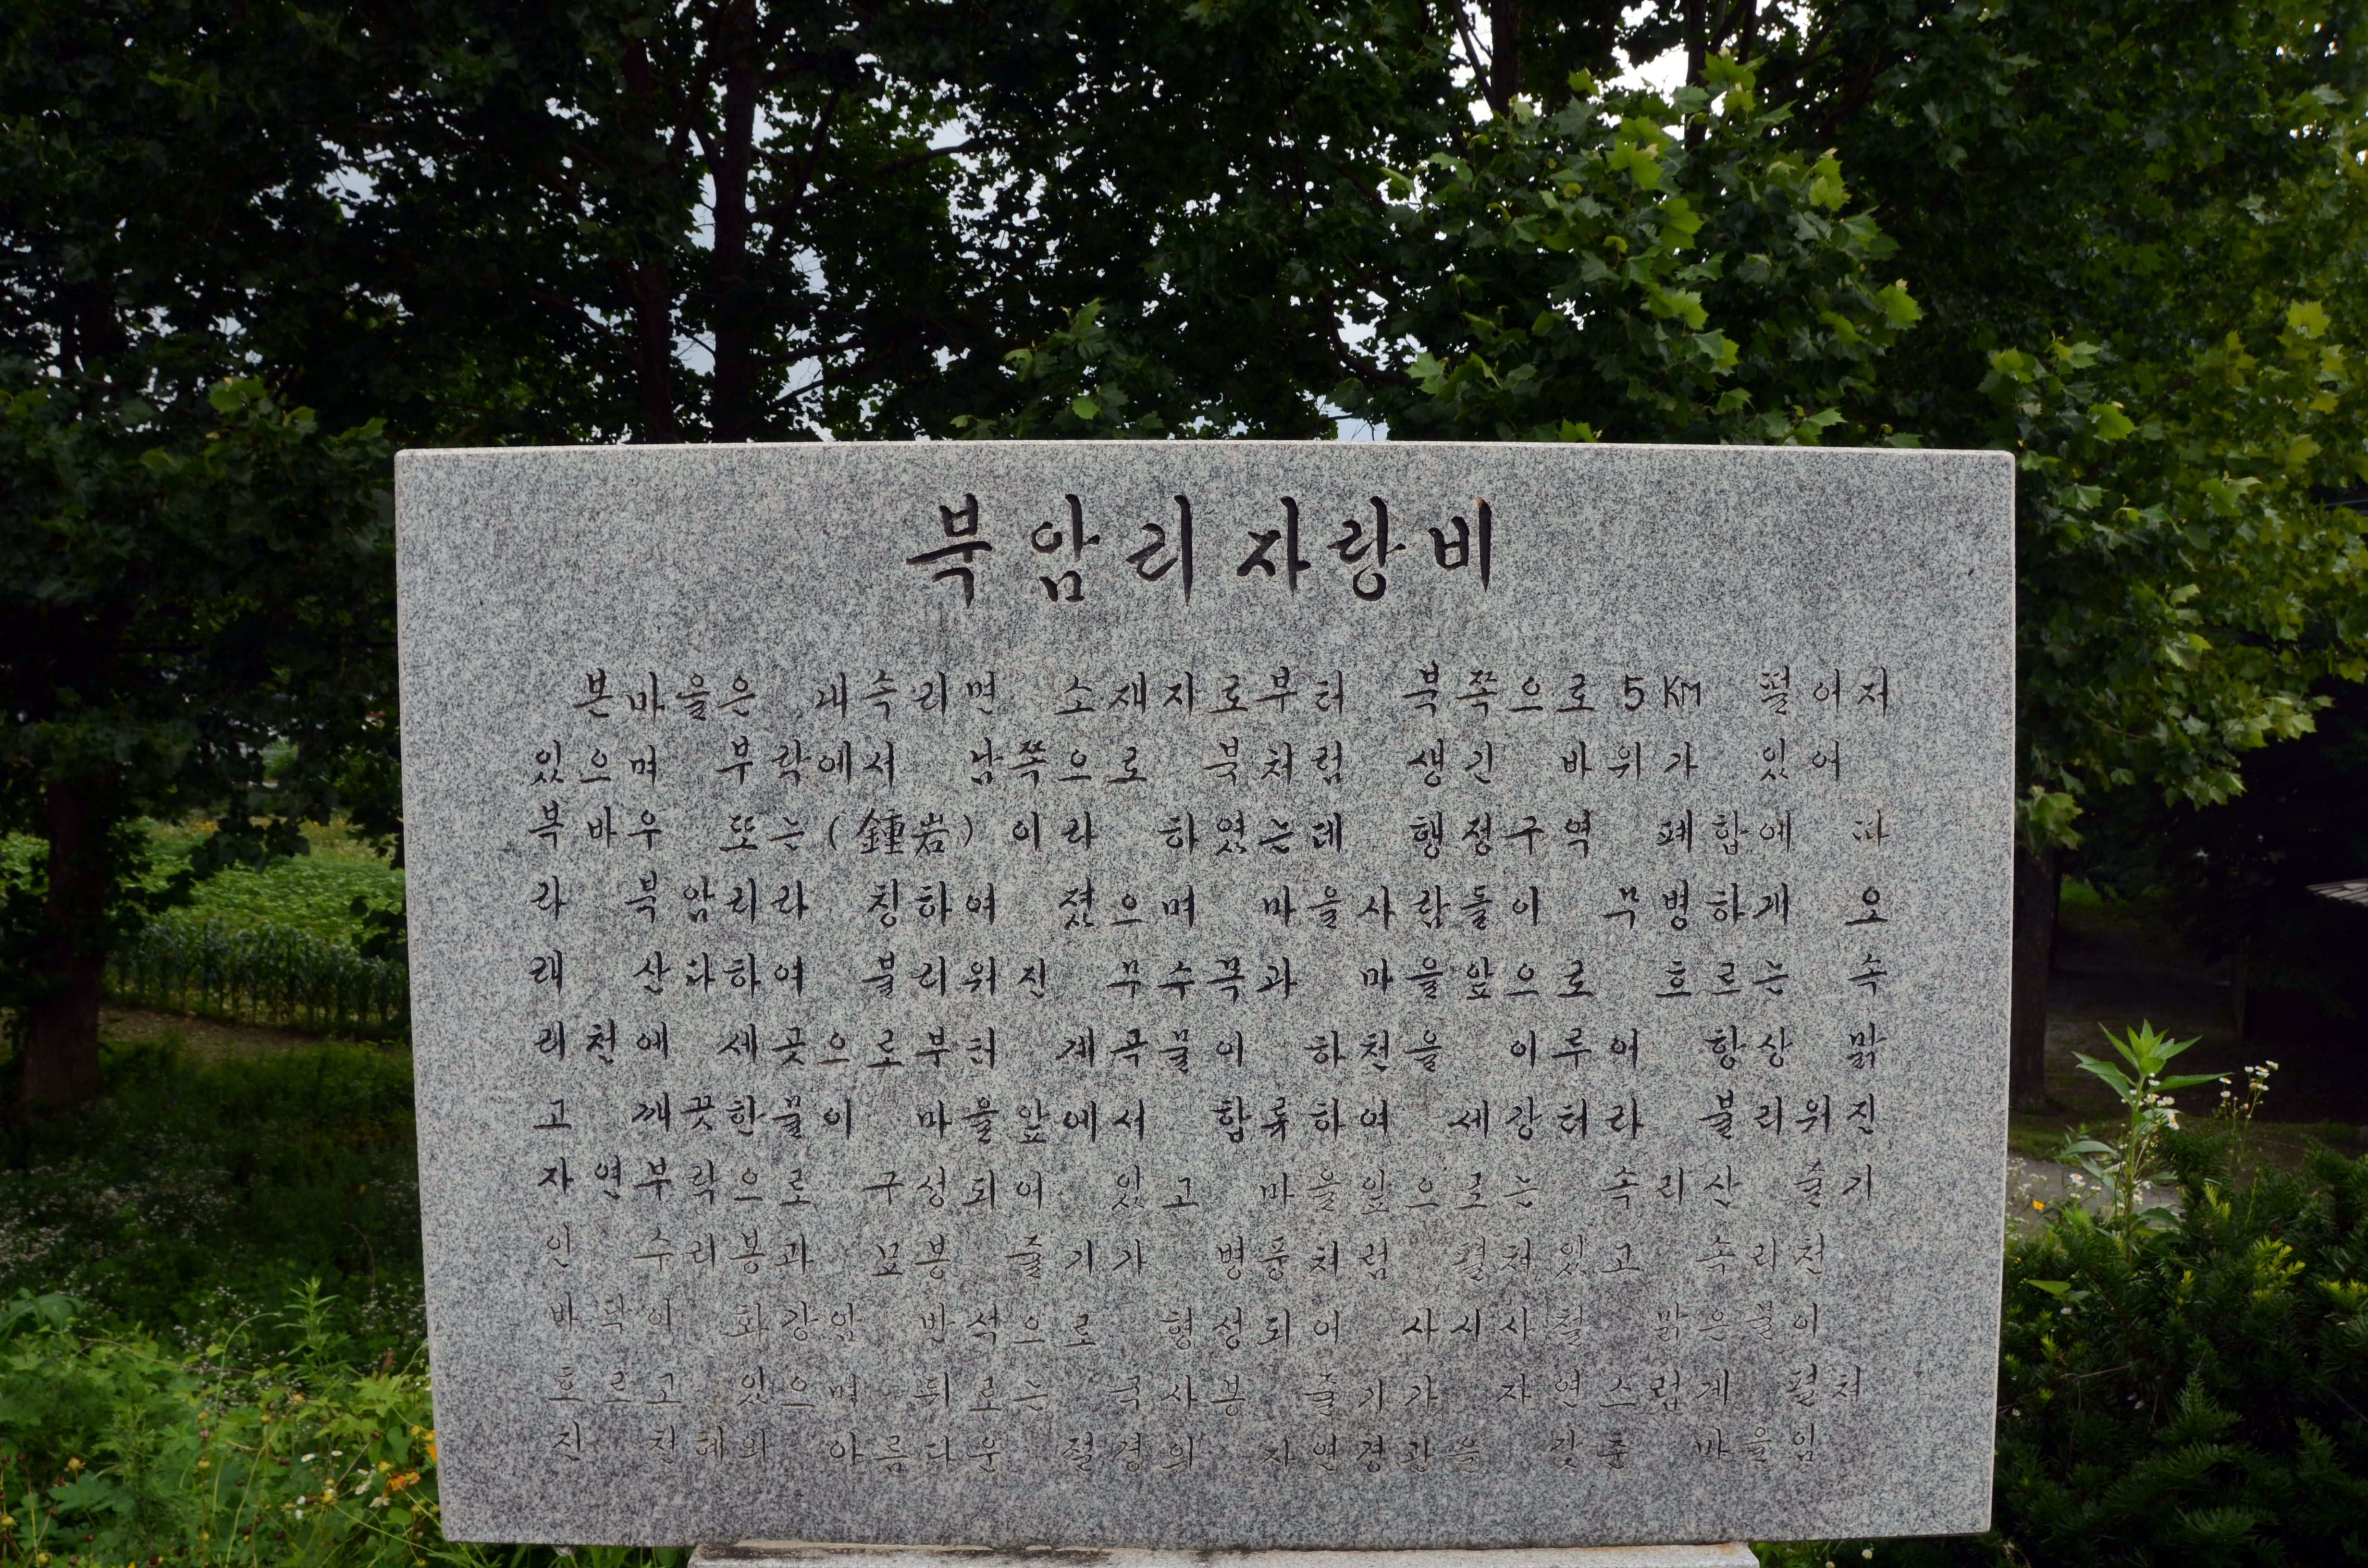 북암리자랑비
본마을은 내속리면 소재지로부터 북쪽으로 5KM 떨어저
있으며 부락에서 남쪽으로 북처럼 생긴 바위가 있어
북바우 또는(鍾岩)이라 하였는데 행정구역 폐합에 따
라 북암리라 칭하여 졌으며 마을사람들이 무병하게 오
래 산다하여 불리워진 무수목과 마을앞으로 흐르는 속
리천에 세곳으로부터 계곡물이 하천을 이루어 항상 맑
고 깨끗한물이 마을앞에서 합류하여 세강터라 불리워진
자연부락으로 구성되어 있고 마을앞으로는 속리산 줄기
인 수리봉과 묘봉 줄기가 병풍처럼 펼처있고 속리천
바닥이 화강암 반석으로 형성되어 사시사철 맑은물이
흐르고 있으며 뒤로는 국사봉 줄기가 자연스럽게 펼처
진 천혜의 아름다운 절경의 자연경관을 갖춘 마을임